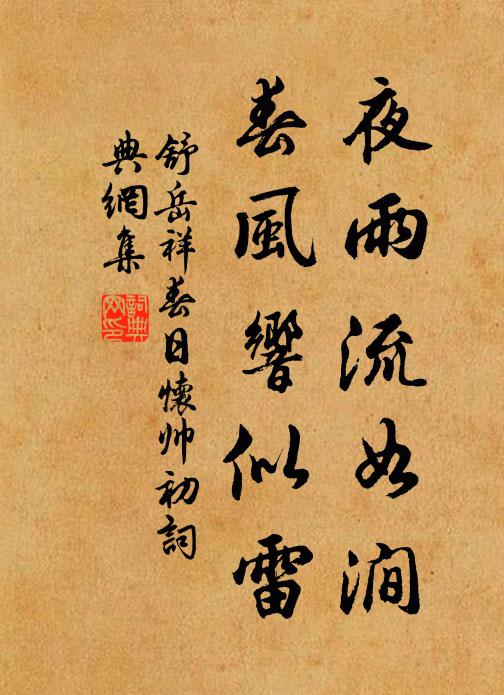 夜雨流如澗
春風響似雷
舒岳祥春日懷帅初詞
典網集
詞典网印